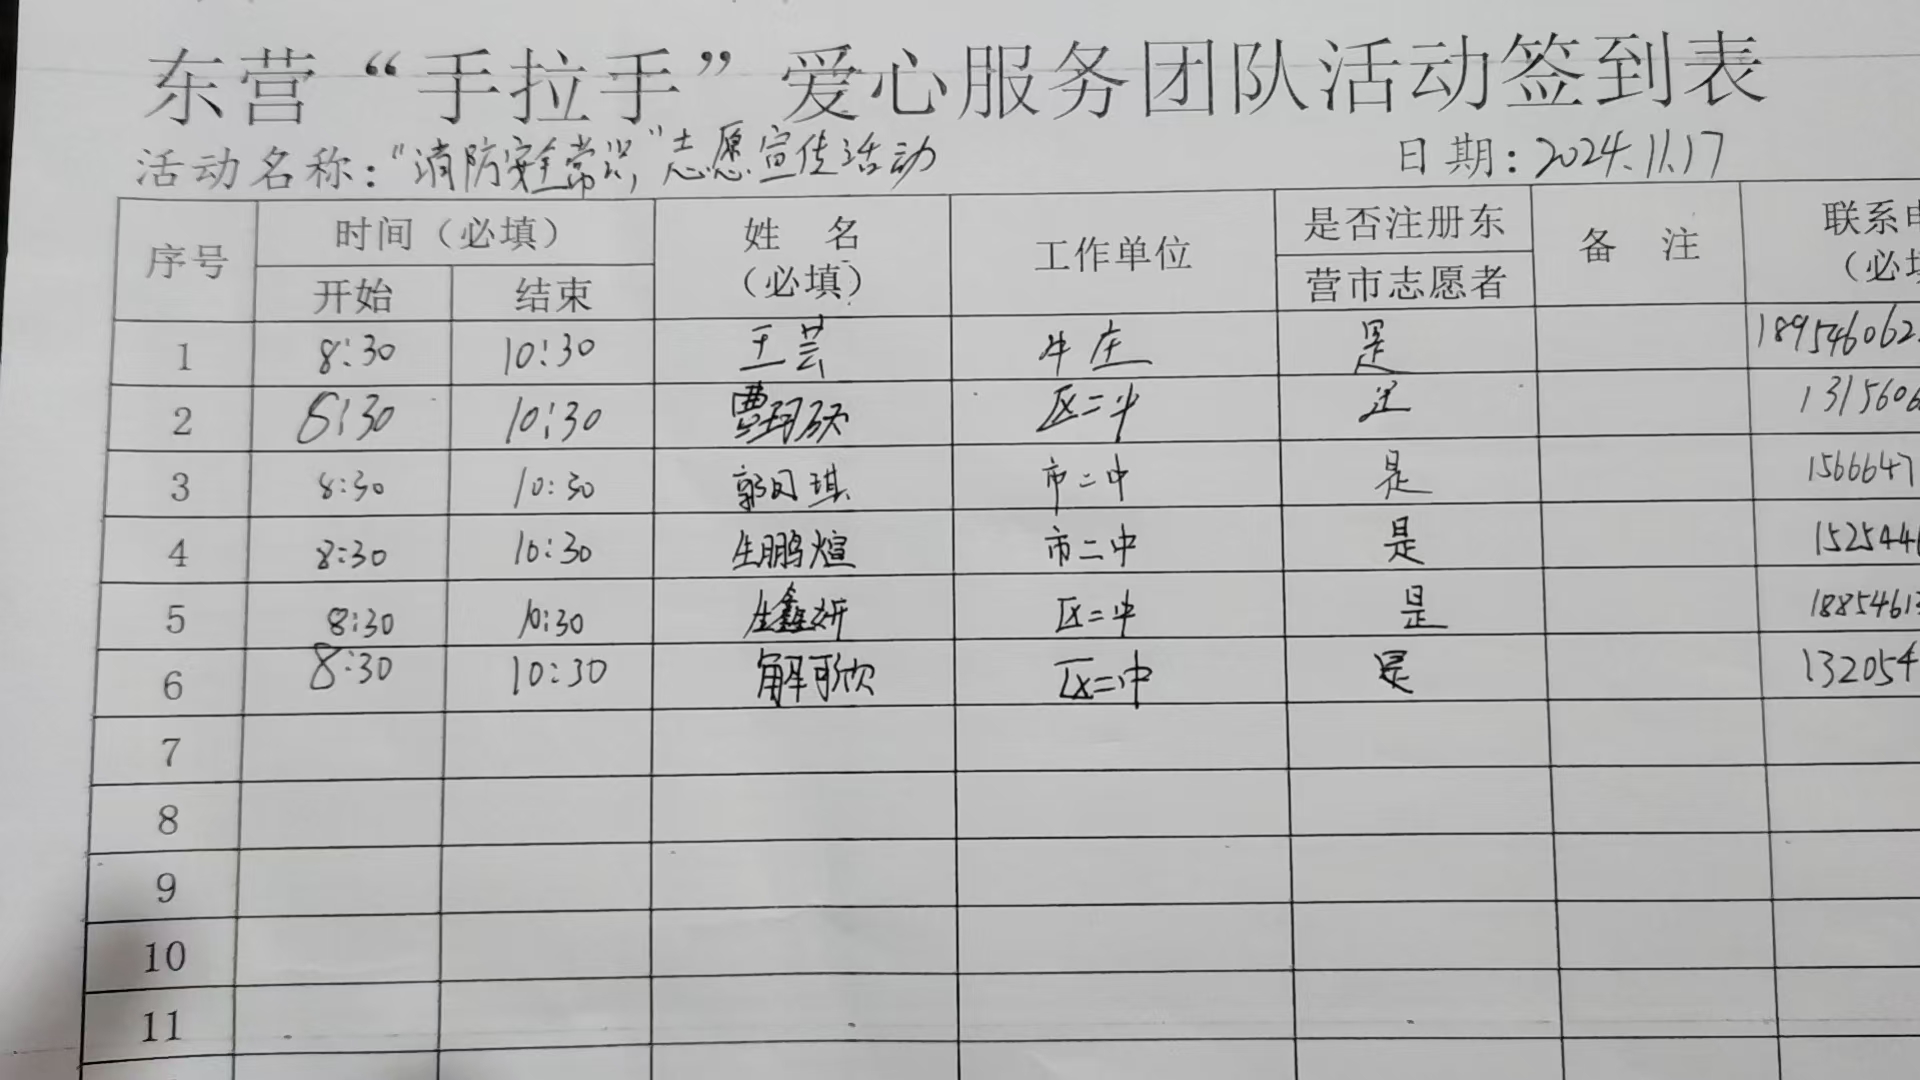 东营“手拉手”爱心服务团队活动签到表
活动名称：“消防安全常识”志愿宣传活动 日期：2024.11.17
序号 时间（必填） 姓 名 工作单位 是否注册东 备 注 联系电
开始 结束 （必填） 营市志愿者 （必填
1 8:30 10:30 王芸 牛庄 是 189546062
2 8:30 10:30 区二中 是 1315606
3 8:30 10:30 郭月琪 市二中 是 1566647
4 8:30 10:30 生鹏煊 市二中 是 1525446
5 8:30 10:30 生鑫妍 区二中 是 18854613
6 8:30 10:30 解可欣 区二中 是 132054
7
8
9
10
11